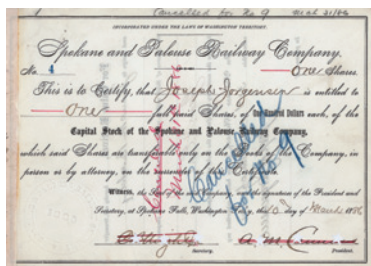 Cancelled for No 9 Mch 31/86
INCORPORATED UNDER THE LAWS OF WASHINGTON TERRITORY.
Spokane and Palouse Railway Company.
No. 4 One Shares
This is to Certify, that Joseph Jorgensen is entitled to
One full paid Shares, of One Hundred Dollars each, of the
Capital Stock of the Spokane and Palouse Railway Company,
which said Shares are transferable only on the Books of the Company, in
person or by attorney, on the surrender of this Certificate.
Witness, the Seal of the Company, and the signatures of the President and
Secretary, at Spokane Falls, Washington Ty., this day of March 1886
Secretary. President.
Cancelled
for No 9
Cancelled